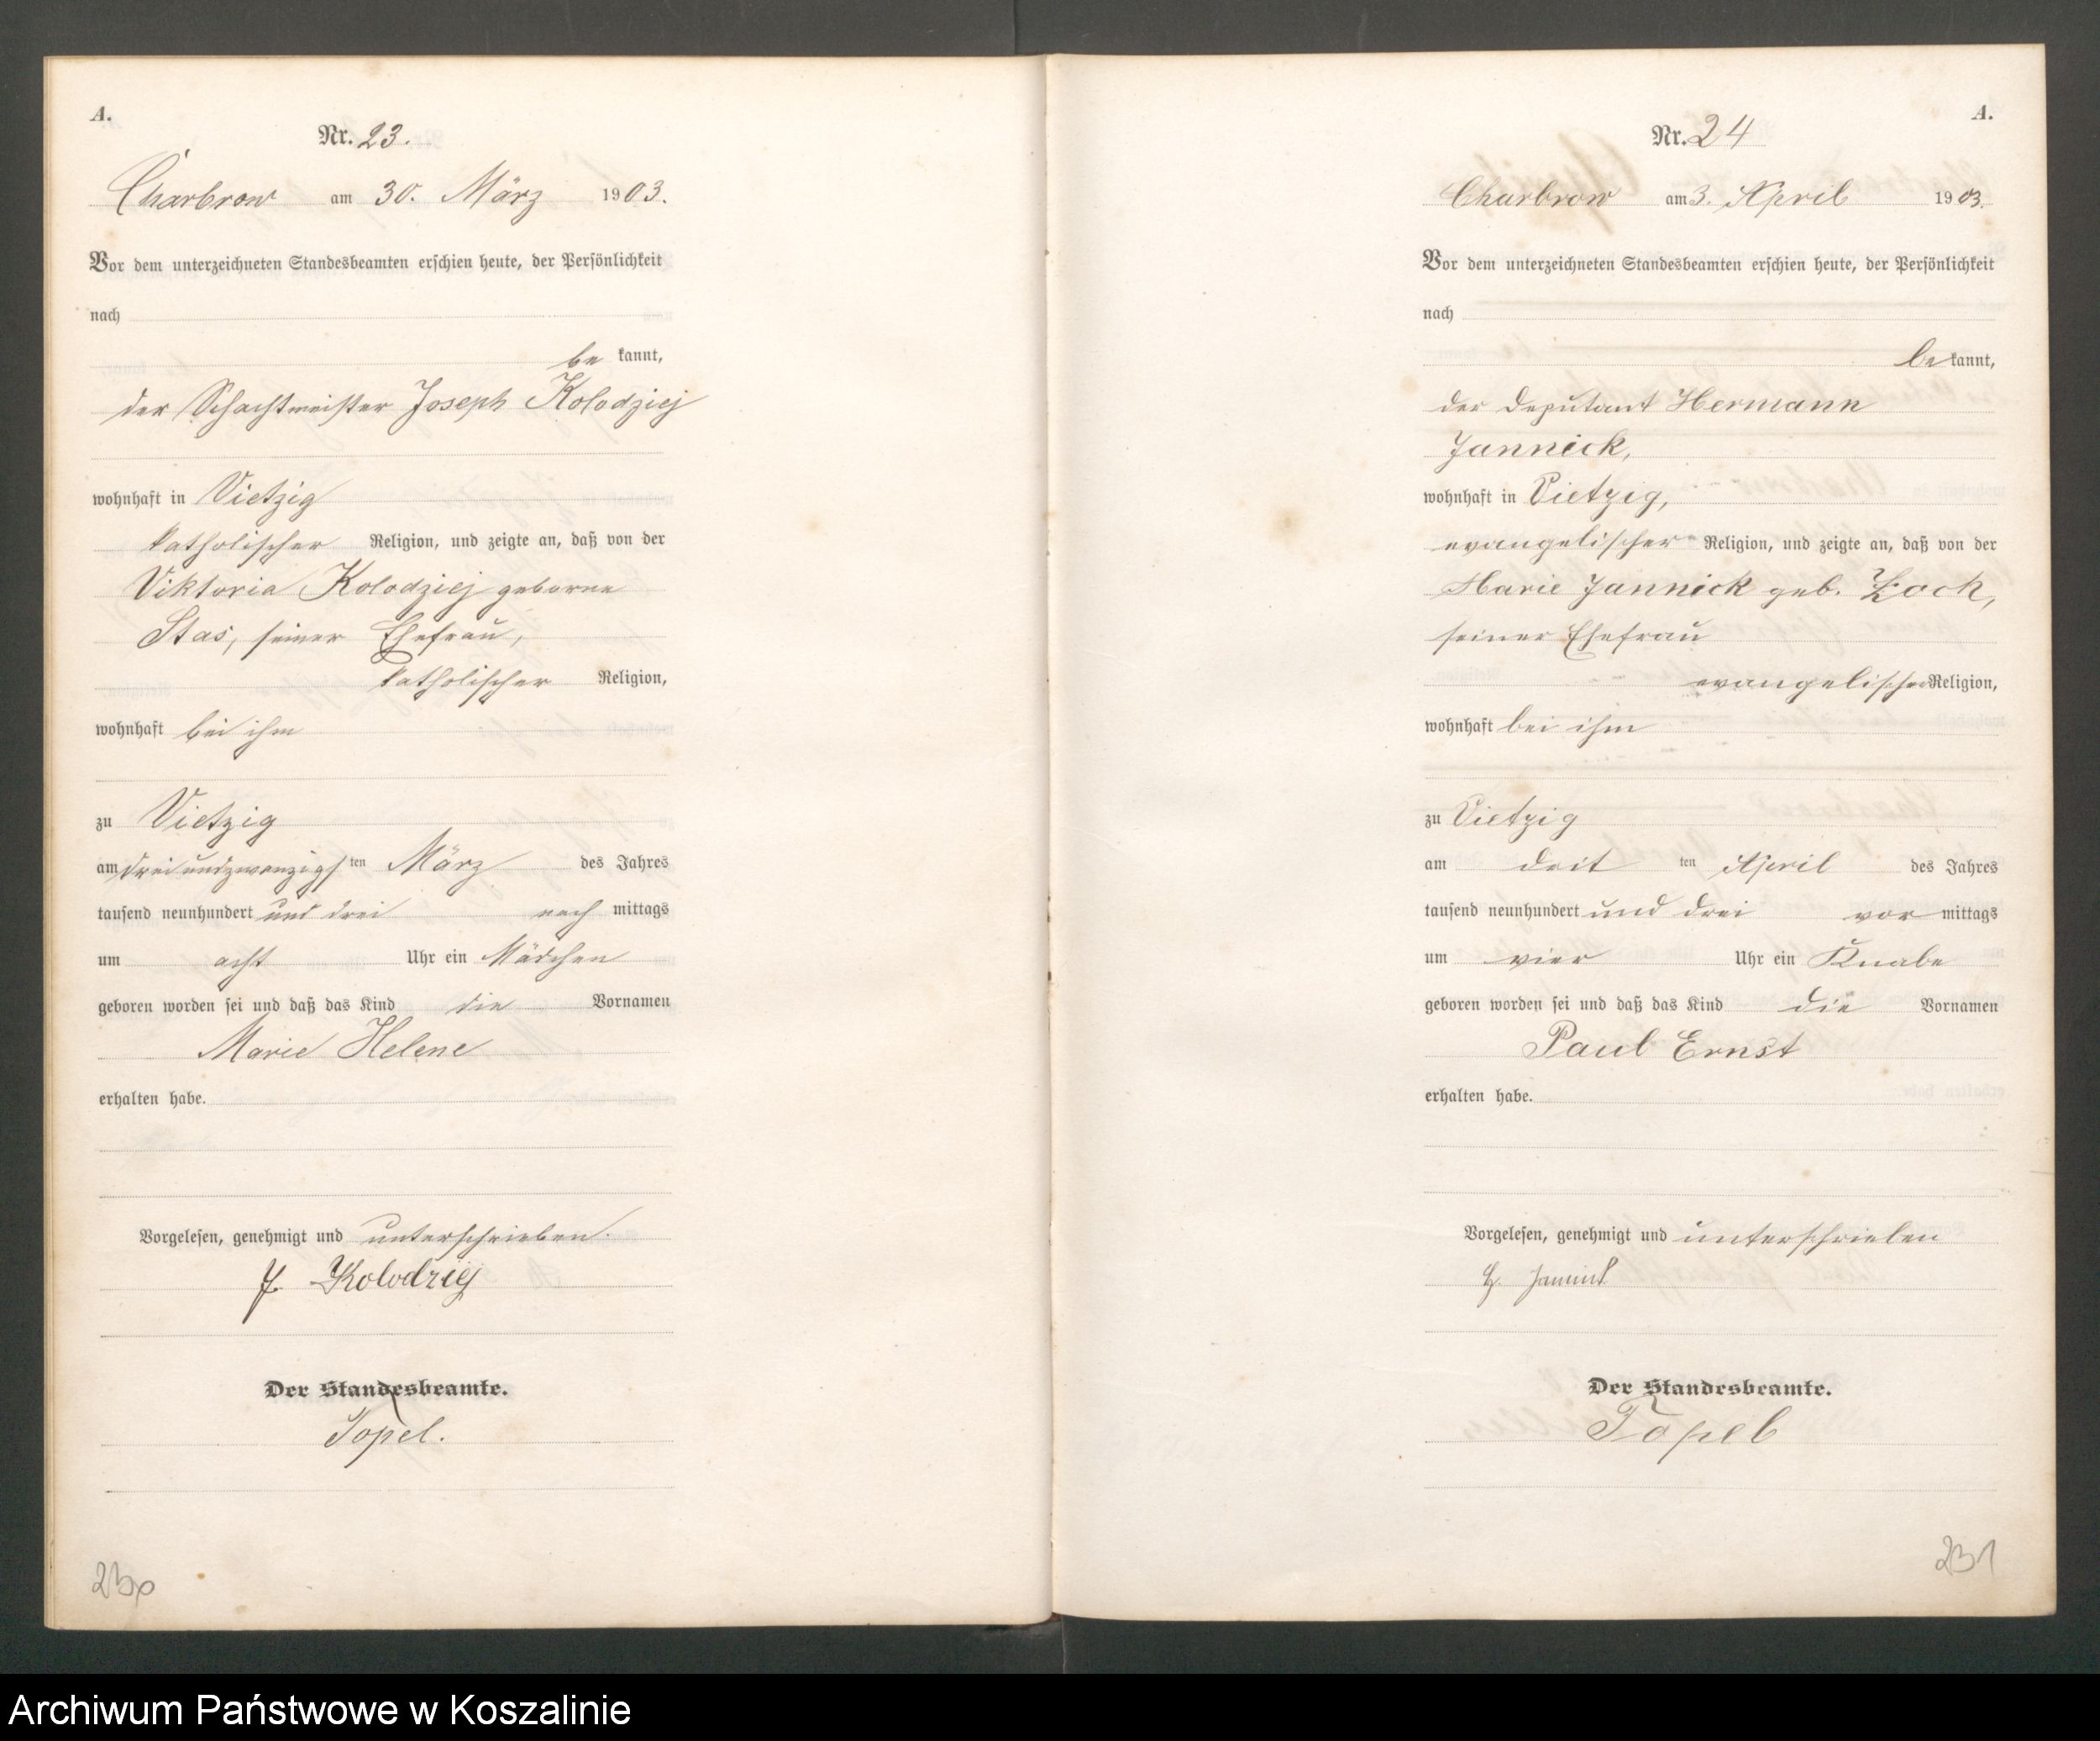 A.
Nr. 23.
Charbrow am 30. März 1903.
Vor dem unterzeichneten Standesbeamten erschien heute, der Persönlichkeit
nach
be kannt,
der Schachtmeister Joseph Kolodziej
wohnhaft in Vietzig
katholischer Religion, und zeigte an, daß von der
Viktoria Kolodziej geborne
Stas, seiner Ehefrau,
katholischer Religion,
wohnhaft bei ihm
zu Vietzig
am dreiundzwanzigsten März des Jahres
tausend neunhundert und drei nach mittags
um acht Uhr ein Mädchen
geboren worden sei und daß das Kind die Vornamen
Marie Helene
erhalten habe.
Vorgelesen, genehmigt und unterschrieben.
J. Kolodziej
Der Standesbeamte.
Topel.
230
A.
Nr. 24
Charbrow am 3. April 1903.
Vor dem unterzeichneten Standesbeamten erschien heute, der Persönlichkeit
nach
be kannt,
der Deputant Hermann
Jannick,
wohnhaft in Vietzig,
evangelischer Religion, und zeigte an, daß von der
Marie Jannick geb. Zoch,
seiner Ehefrau
evangelischer Religion,
wohnhaft bei ihm
zu Vietzig
am drit ten April des Jahres
tausend neunhundert und drei vor mittags
um vier Uhr ein Knabe
geboren worden sei und daß das Kind die Vornamen
Paul Ernst
erhalten habe.
Vorgelesen, genehmigt und unterschrieben
H. Jannick
Der Standesbeamte.
Topel
231
Archiwum Państwowe w Koszalinie